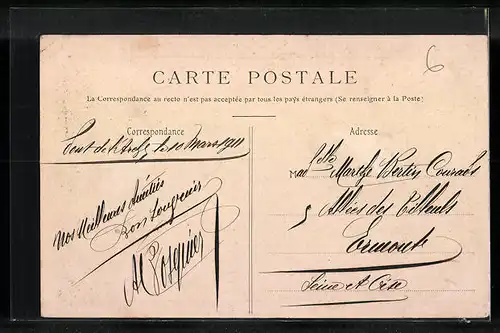 6
CARTE POSTALE
La Correspondance au recto n'est pas acceptée par tous les pays étrangers (Se renseigner à la Poste)
Correspondance
Pont de l'Arche le 10 Mars 1911
Nos Meilleures Amitiés
Bon Souvenir
Adresse
Mad
elle
Marthe Bertin
5 Allées des Tilleuls
Ermont
Seine et Oise